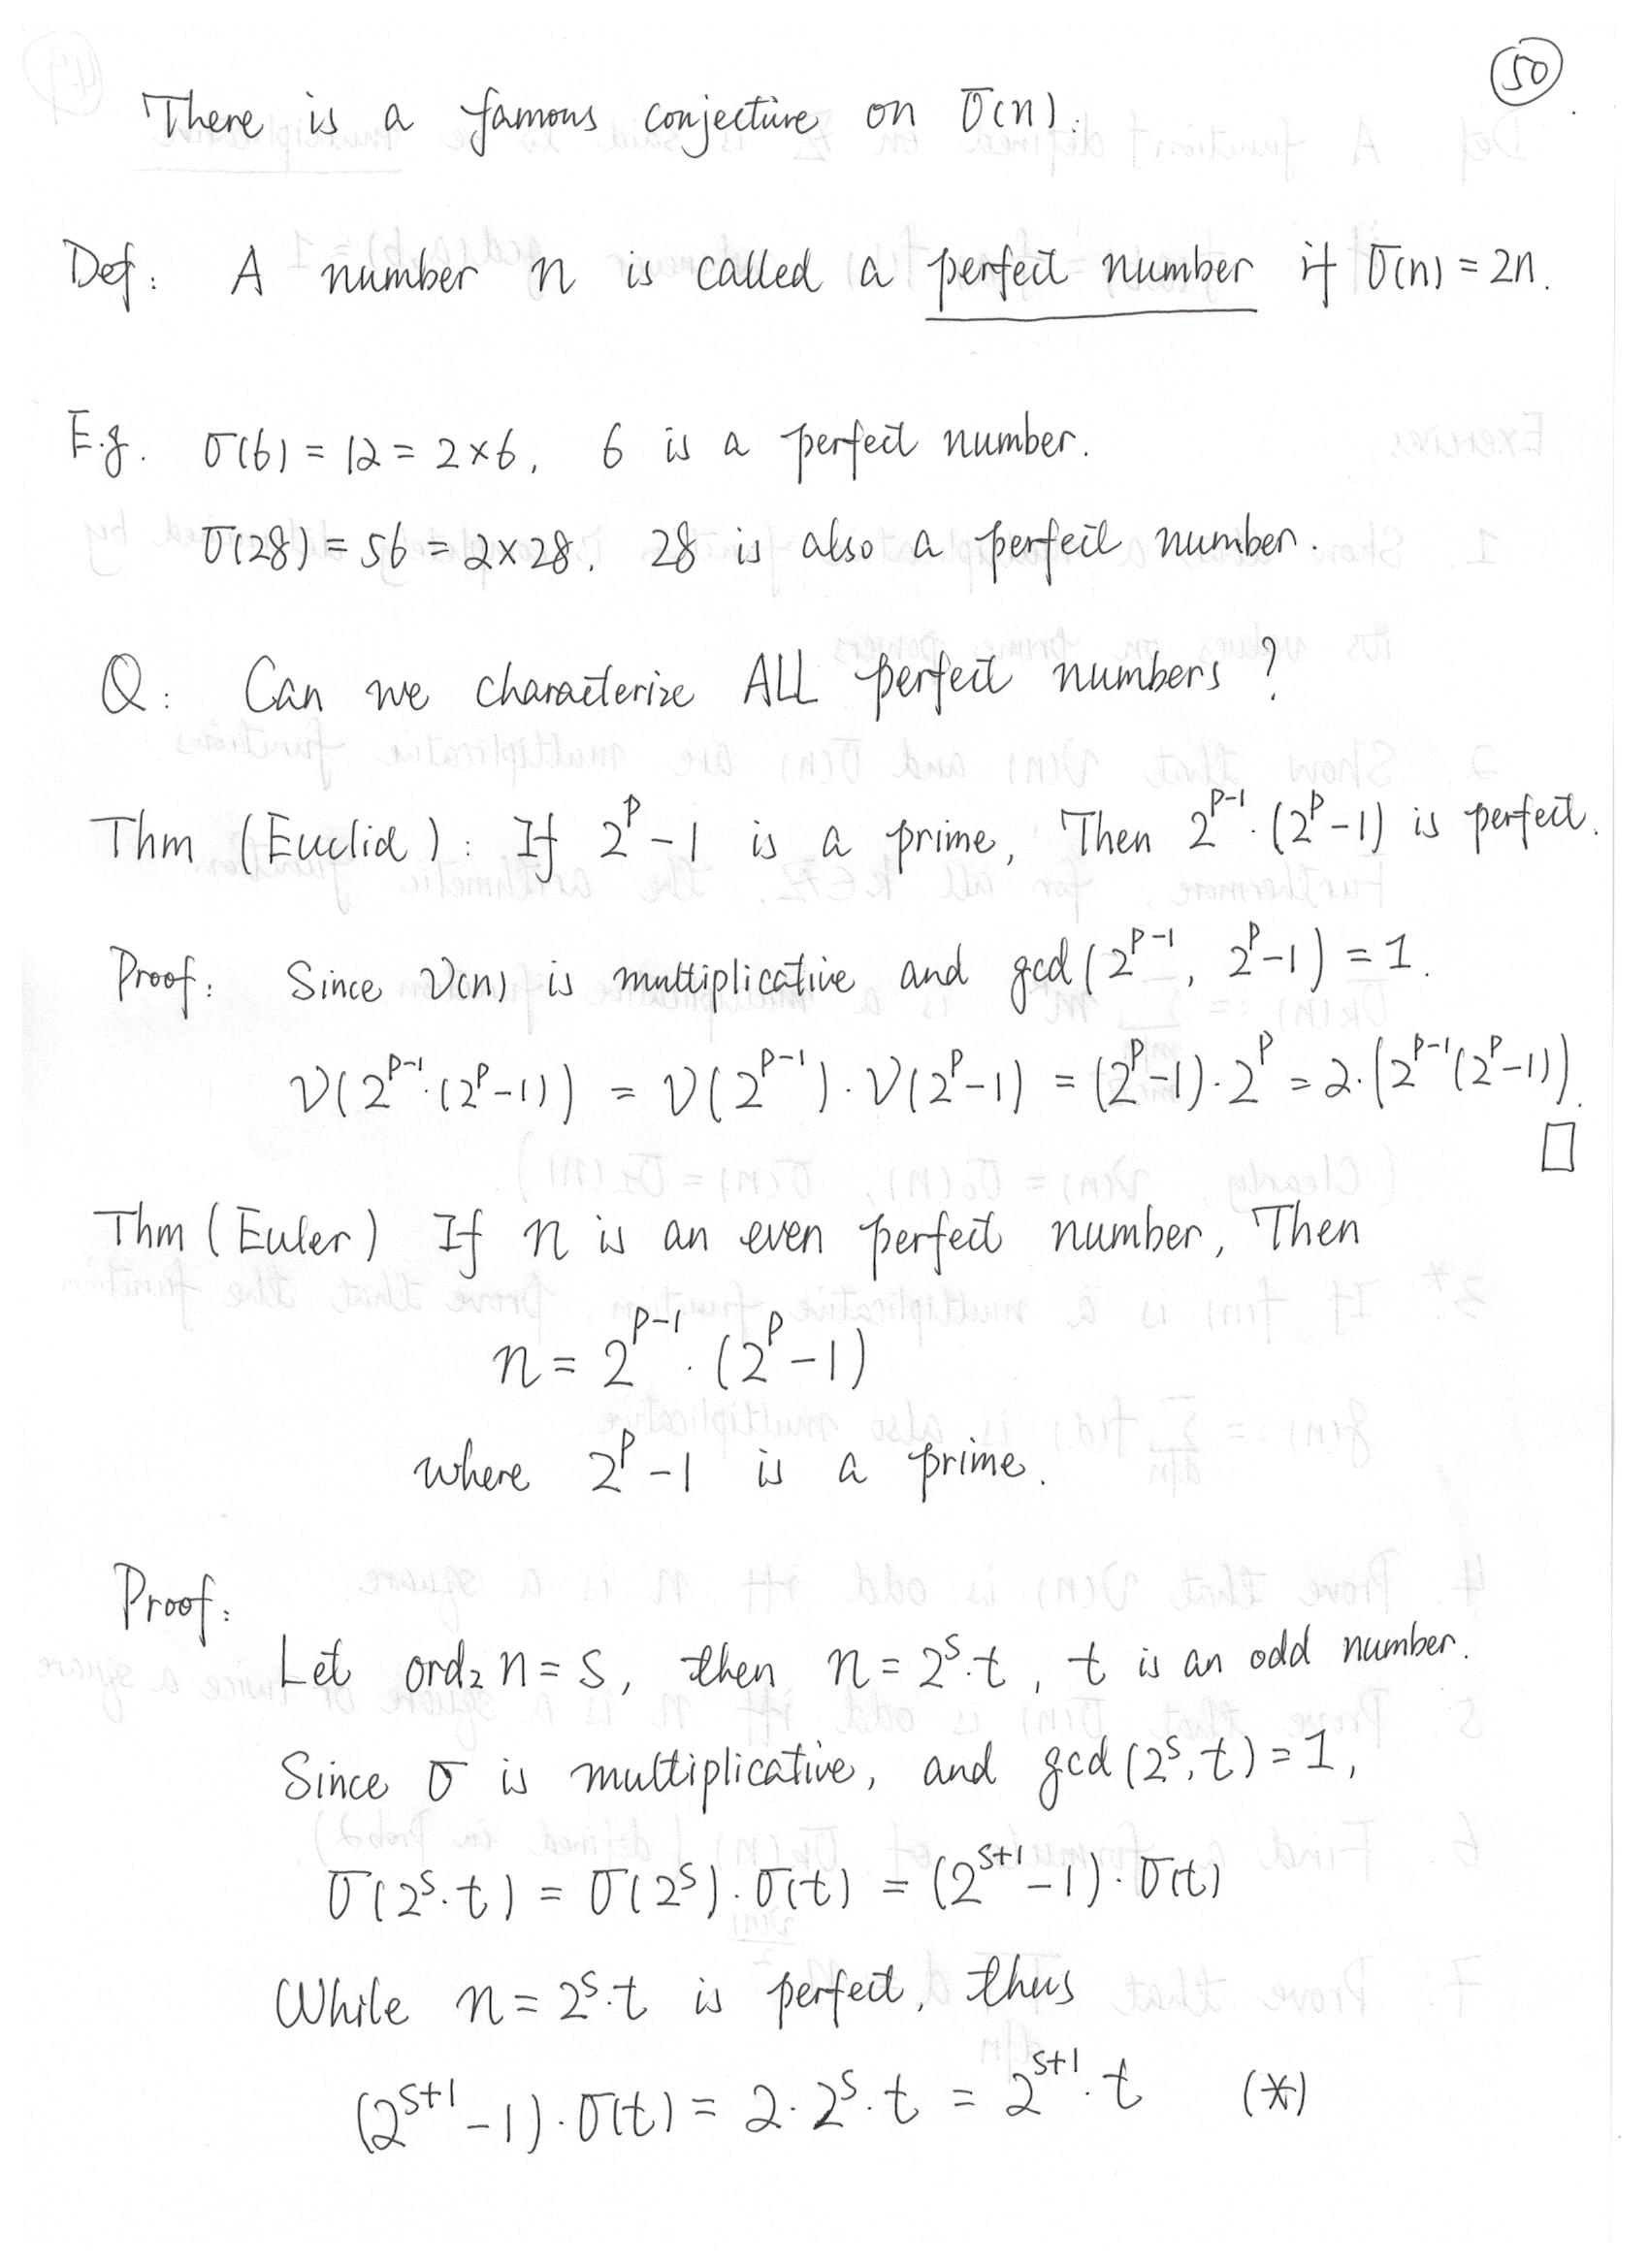 50
There is a famous conjecture on σ(n).
Def: A number n is called a perfect number if σ(n) = 2n.
E.g. σ(6) = 12 = 2×6, 6 is a perfect number.
σ(28) = 56 = 2×28. 28 is also a perfect number.
Q: Can we characterize ALL perfect numbers?
Thm (Euclid): If 2^p - 1 is a prime, Then 2^{p-1}·(2^p-1) is perfect.
Proof: Since ν(n) is multiplicative and gcd(2^{p-1}, 2^p-1) = 1.
ν(2^{p-1}·(2^p-1)) = ν(2^{p-1})·ν(2^p-1) = (2^p-1)·2^p = 2·(2^{p-1}(2^p-1)).
□
Thm (Euler) If n is an even perfect number, Then
n = 2^{p-1}·(2^p-1)
where 2^p - 1 is a prime.
Proof:
Let ord₂ n = s, then n = 2^s·t, t is an odd number.
Since σ is multiplicative, and gcd(2^s, t) = 1,
σ(2^s·t) = σ(2^s)·σ(t) = (2^{s+1}-1)·σ(t)
While n = 2^s·t is perfect, thus
(2^{s+1}-1)·σ(t) = 2·2^s·t = 2^{s+1}·t (*)